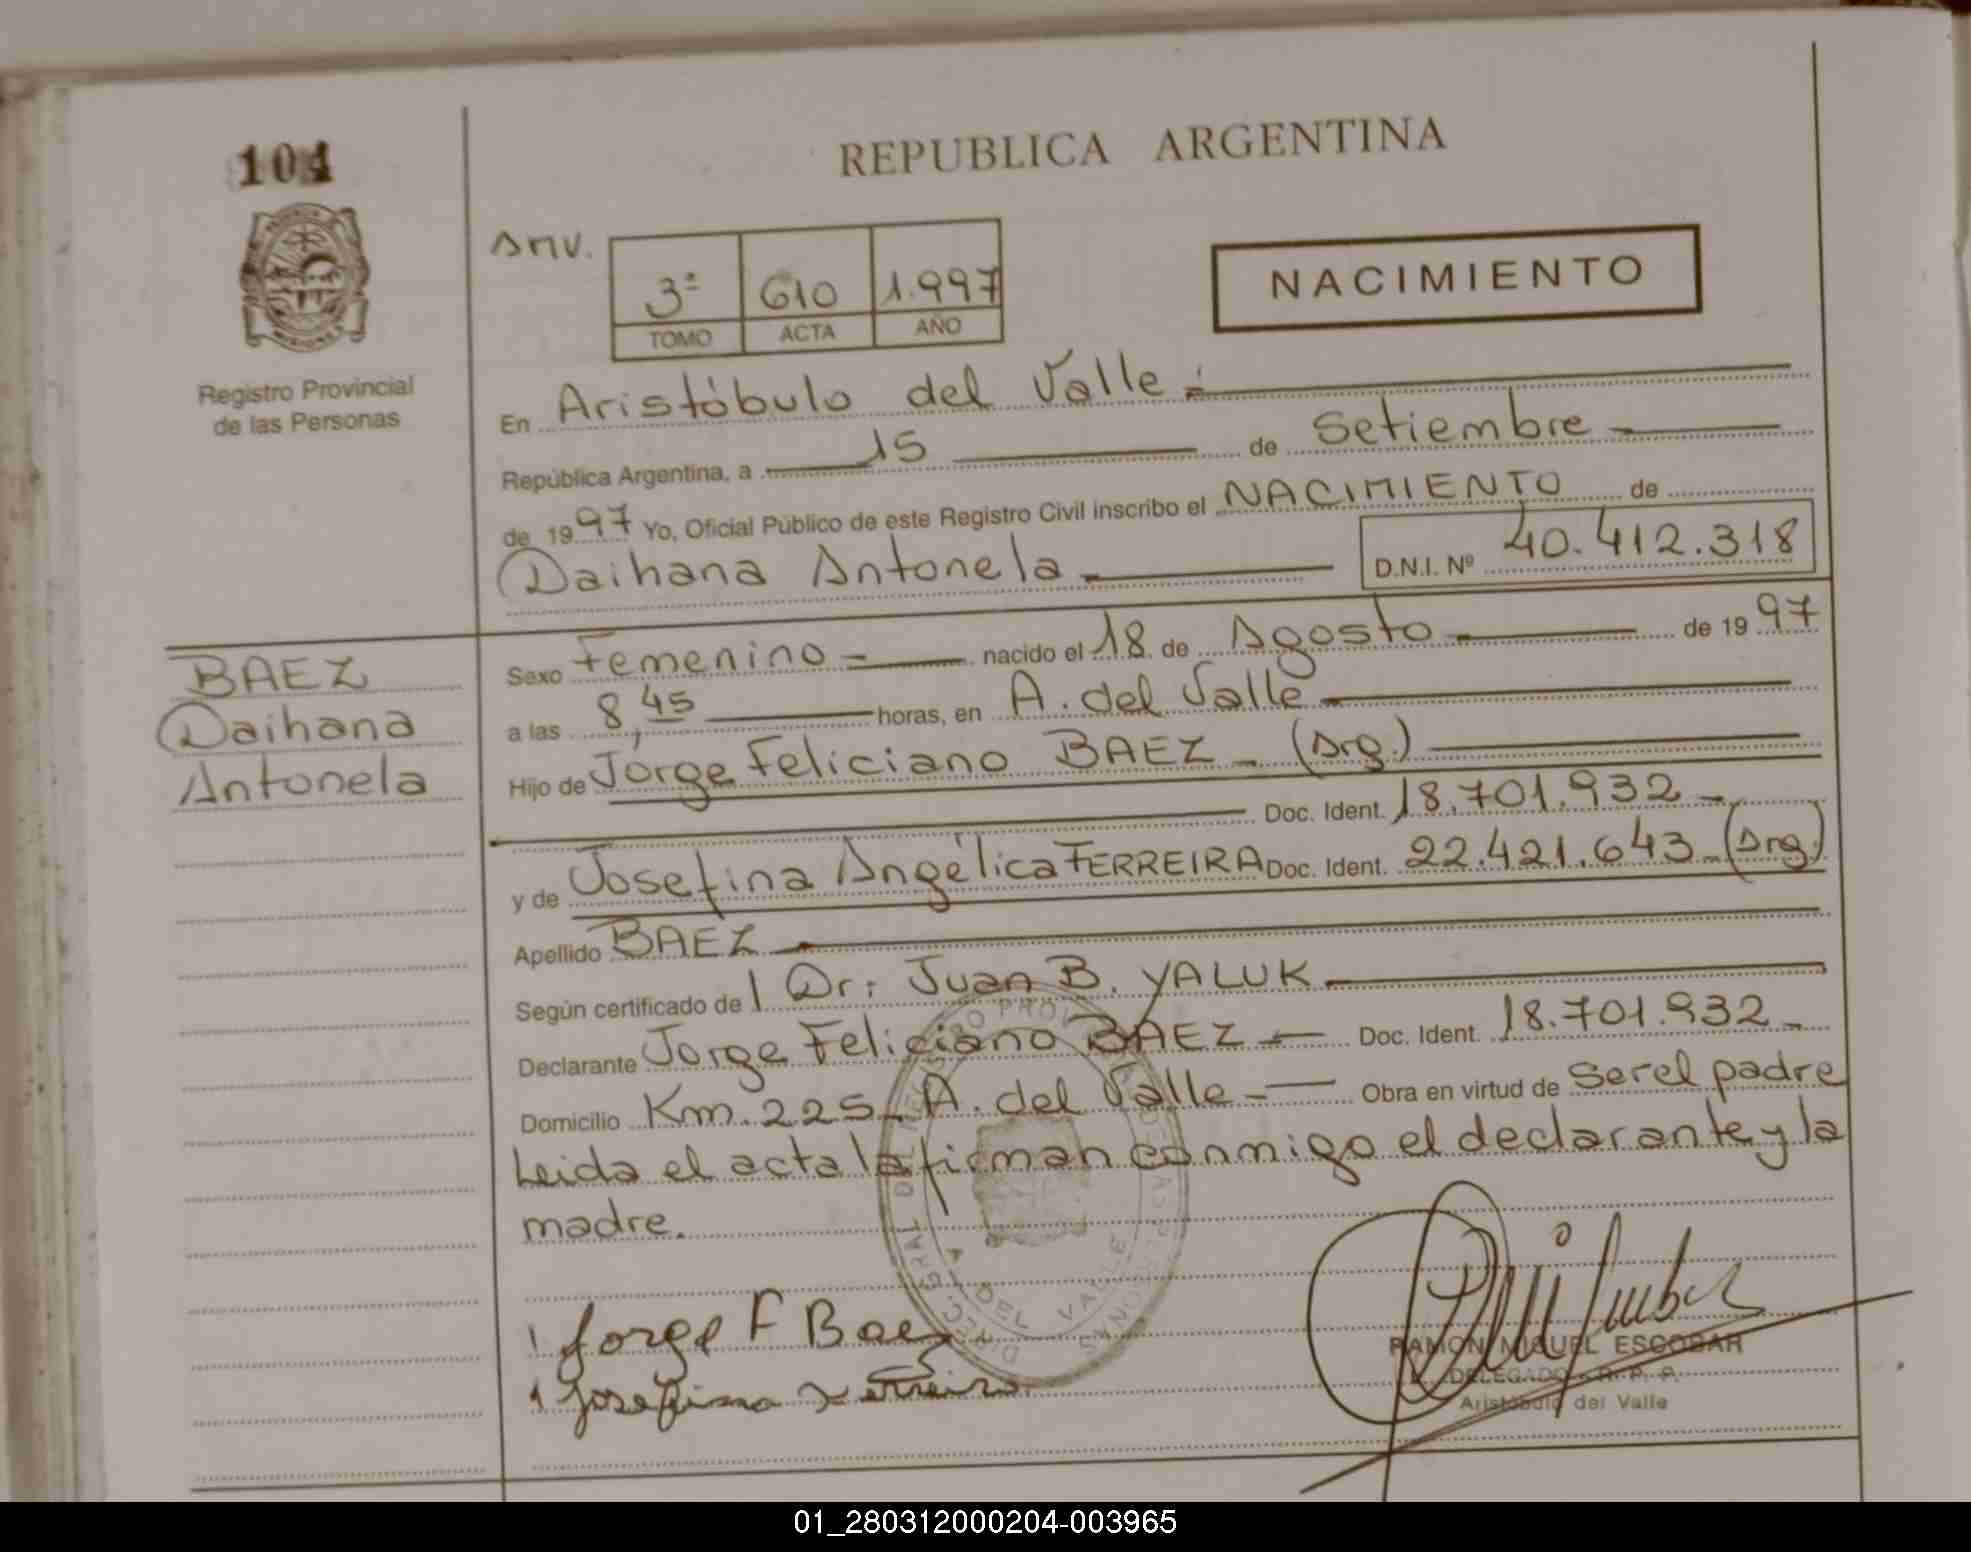 104
REPUBLICA ARGENTINA
MISIONES
Registro Provincial
de las Personas
AMV.
3ª 610 1.997
TOMO ACTA AÑO
NACIMIENTO
En Aristóbulo del Valle.-
República Argentina, a 15 de Setiembre
de 1997 Yo, Oficial Público de este Registro Civil inscribo el NACIMIENTO de
Daihana Antonela D.N.I. Nº 40.412.318
BAEZ
Daihana
Antonela
Sexo Femenino - nacido el 18 de Agosto de 1997
a las 8,45 horas, en A. del Valle
Hijo de Jorge Feliciano BAEZ - (Arg.)
Doc. Ident. 18.701.932 -
y de Josefina Angélica FERREIRA Doc. Ident. 22.421.643 - (Arg.)
Apellido BAEZ
Según certificado de l Dr. Juan B. YALUK
Declarante Jorge Feliciano BAEZ - Doc. Ident. 18.701.932 -
Domicilio Km. 225 - A. del Valle - Obra en virtud de ser el padre
Leida el acta la firman conmigo el declarante y la
madre.
DIREC. GRAL DEL REGISTRO PROV. DE LAS PERSONAS
A. DEL VALLE
Jorge F Baez
Josefina Ferreira
RAMON MIGUEL ESCOBAR
DELEGADO R. P. P.
Aristóbulo del Valle
01_280312000204-003965